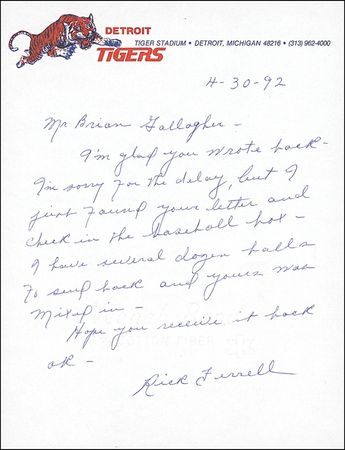 DETROIT
TIGER STADIUM • DETROIT, MICHIGAN 48216 • (313) 962-4000
TIGERS
4-30-92
Mr Brian Gallagher -
I'm glad you wrote back -
I'm sorry for the delay, but I
just found your letter and
check in the baseball box -
I have several dozen balls
to send back and yours was
mixed in -
Hope you receive it back
ok -
Rick Ferrell